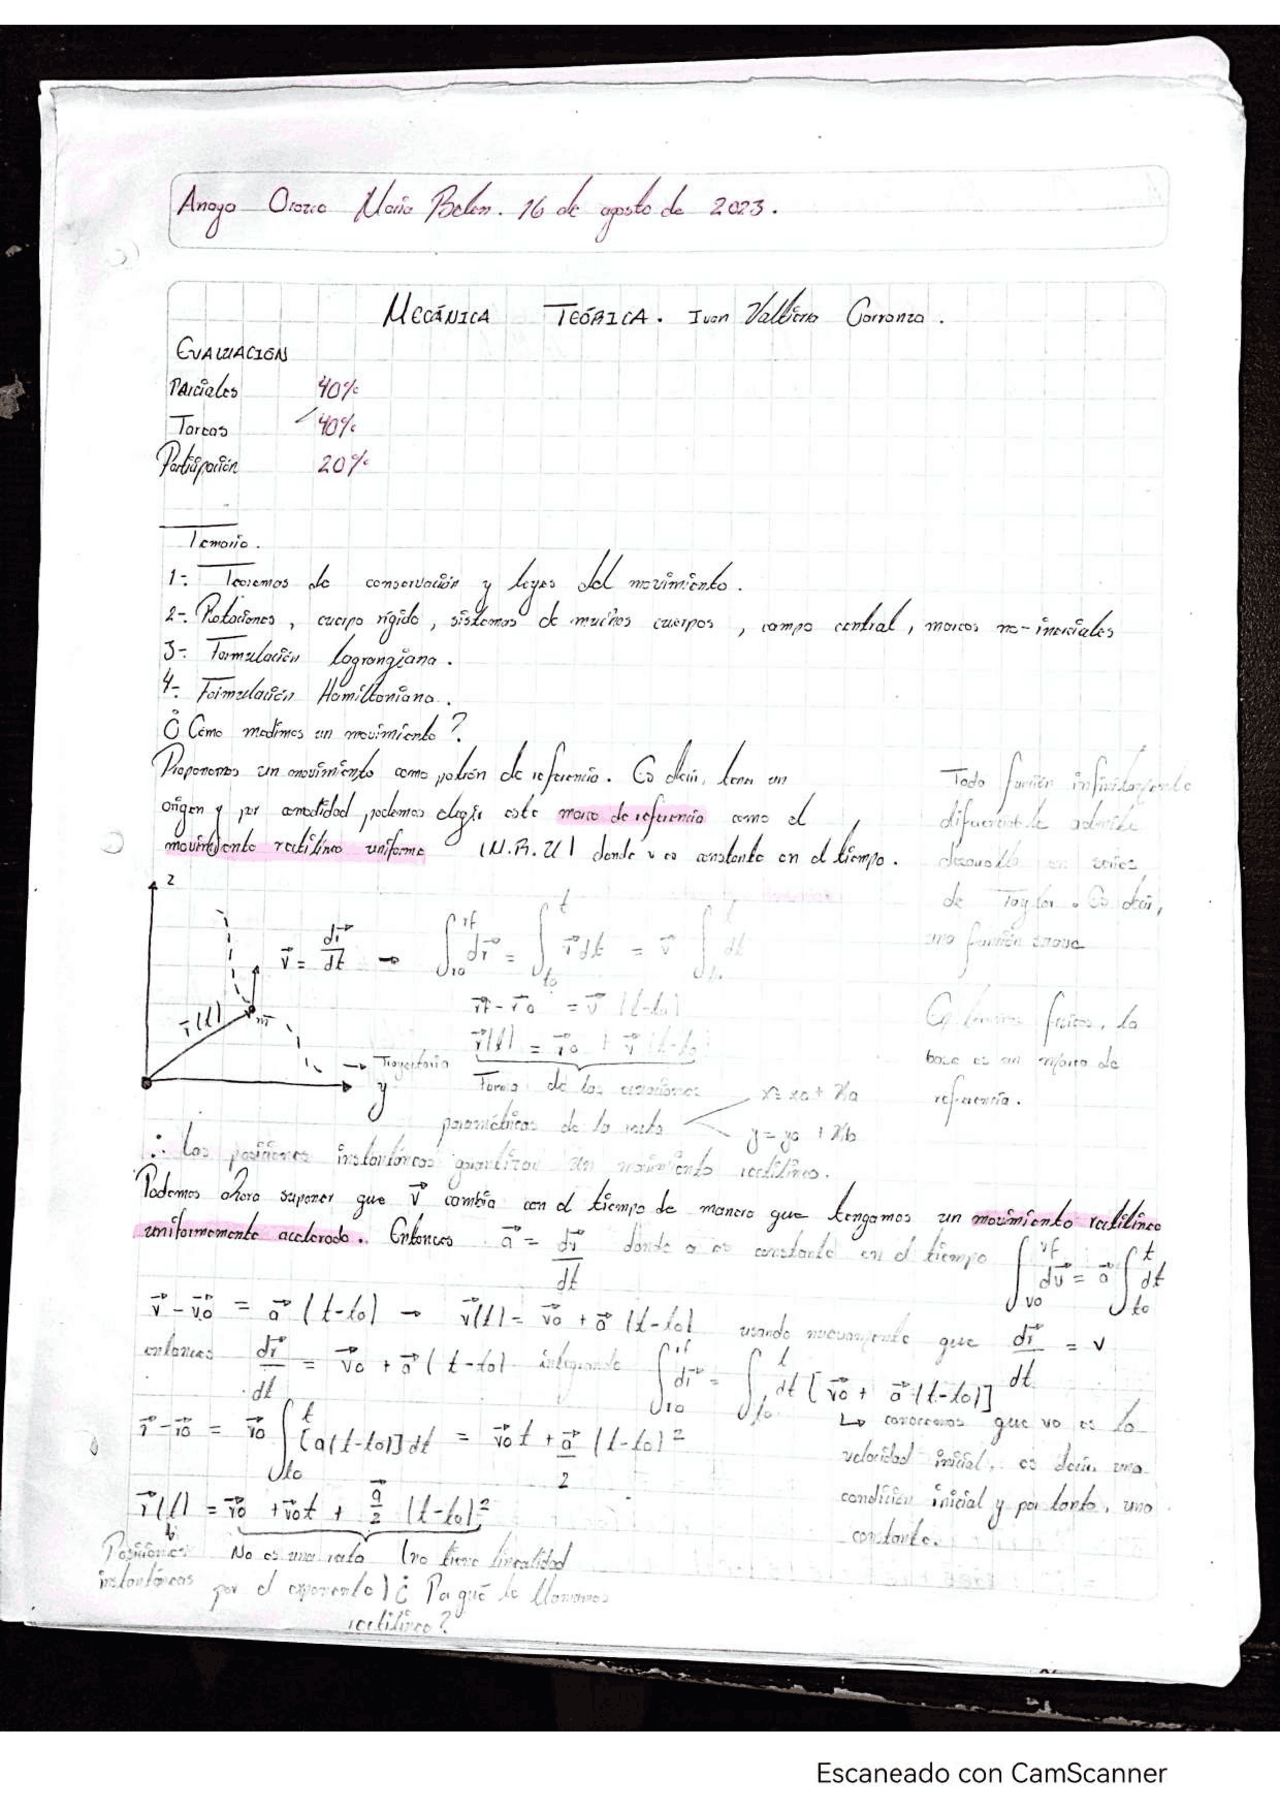 Anaya Orozco María Belen. 16 de agosto de 2023.
MECÁNICA TEÓRICA. Ivan Carranza.
EVALUACIÓN
Parciales 40%
Tareas 40%
Participación 20%
Temario.
1-. Teoremas de conservación y leyes del movimiento.
2-. Rotaciones, cuerpo rígido, sistemas de muchos cuerpos, campo central, marcos no-inerciales
3-. Formulación lagrangiana.
4-. Formulación Hamiltoniana.
¿Cómo medimos un movimiento?
Proponemos un movimiento como patrón de referencia. Es decir, un
origen y por comodidad, podemos elegir este marco de referencia como el
movimiento rectilíneo uniforme (M.R.U) donde v es constante en el tiempo.
Toda función infinitamente
diferenciable admite
desarrollo en series
de Taylor. Es decir,
una función suave
z
\vec{v} = \frac{d\vec{r}}{dt} → \int_{r0}^{rf} d\vec{r} = \int_{t0}^{t} \vec{v} dt = \vec{v} \int_{t0}^{t} dt
\vec{r}(t) m
\vec{r}f - \vec{r}0 = \vec{v} (t-t0)
\vec{r}(t) = \vec{r}0 + \vec{v} (t-t0)
y → Trayectoria
Forma de las ecuaciones
paramétricas de la recta
x = x0 + λa
y = y0 + λb
En física, la
base es un marco de
referencia.
∴ Las posiciones instantáneas garantizan un movimiento rectilíneo.
Podemos ahora suponer que \vec{v} cambia con el tiempo de manera que tengamos un movimiento rectilíneo
uniformemente acelerado. Entonces \vec{a} = \frac{d\vec{v}}{dt} donde a es constante en el tiempo \int_{v0}^{vf} d\vec{v} = \vec{a} \int_{t0}^{t} dt
\vec{v} - \vec{v}0 = \vec{a} (t-t0) → \vec{v}(t) = \vec{v}0 + \vec{a} (t-t0) usando nuevamente que \frac{d\vec{r}}{dt} = v
entonces \frac{d\vec{r}}{dt} = \vec{v}0 + \vec{a} (t-t0) integrando \int_{r0}^{rf} d\vec{r} = \int_{t0}^{t} dt [\vec{v}0 + \vec{a} (t-t0)]
\vec{r} - \vec{r}0 = \vec{v}0 \int_{t0}^{t} [a(t-t0)] dt = \vec{v}0 t + \frac{\vec{a}}{2} (t-t0)^2
↳ conocemos que v0 es la
velocidad inicial, es decir, una
condición inicial y por tanto, una
constante.
\vec{r}(t) = \vec{r}0 + \vec{v}0 t + \frac{\vec{a}}{2} (t-t0)^2
Posiciones
instantáneas
No es una recta (no tiene linealidad
por el exponente) ¿Por qué le llamamos
rectilíneo?
Escaneado con CamScanner